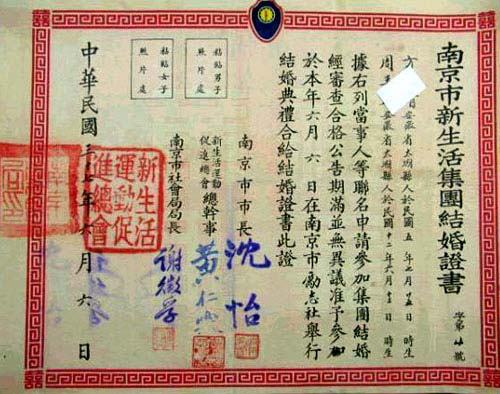 南京市新生活集團結婚證書
字第 號
方 安徽省太湖縣人於民國五年七月 時生
周 安徽省太湖縣人於民國十二年六月十二 時生
據右列當事人等聯名申請參加集團結婚
經審查合格公告期滿並無異議准予參加
於本年六月六日在南京市勵志社舉行
結婚典禮合給結婚證書此證
粘貼男子照片處
粘貼女子照片處
南京市市長
沈怡
新生活運動促進總會總幹事
黃仁霖
南京市社會局局長
謝徵孚
中華民國三十七年六月六日
新生活運動促進總會